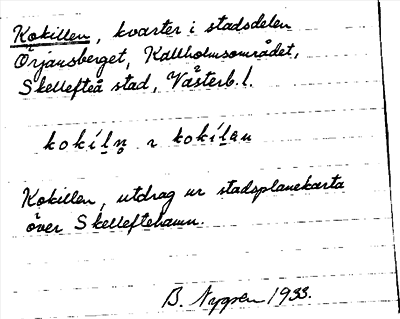 Kokillen, kvarter i stadsdelen
Örjansberget, Kallholmsområdet,
Skellefteå stad, Västerb. l.
kokílṇ ~ kokílen
Kokillen, utdrag ur stadsplanekarta
över Skelleftehamn.
B. Nygren 1933.